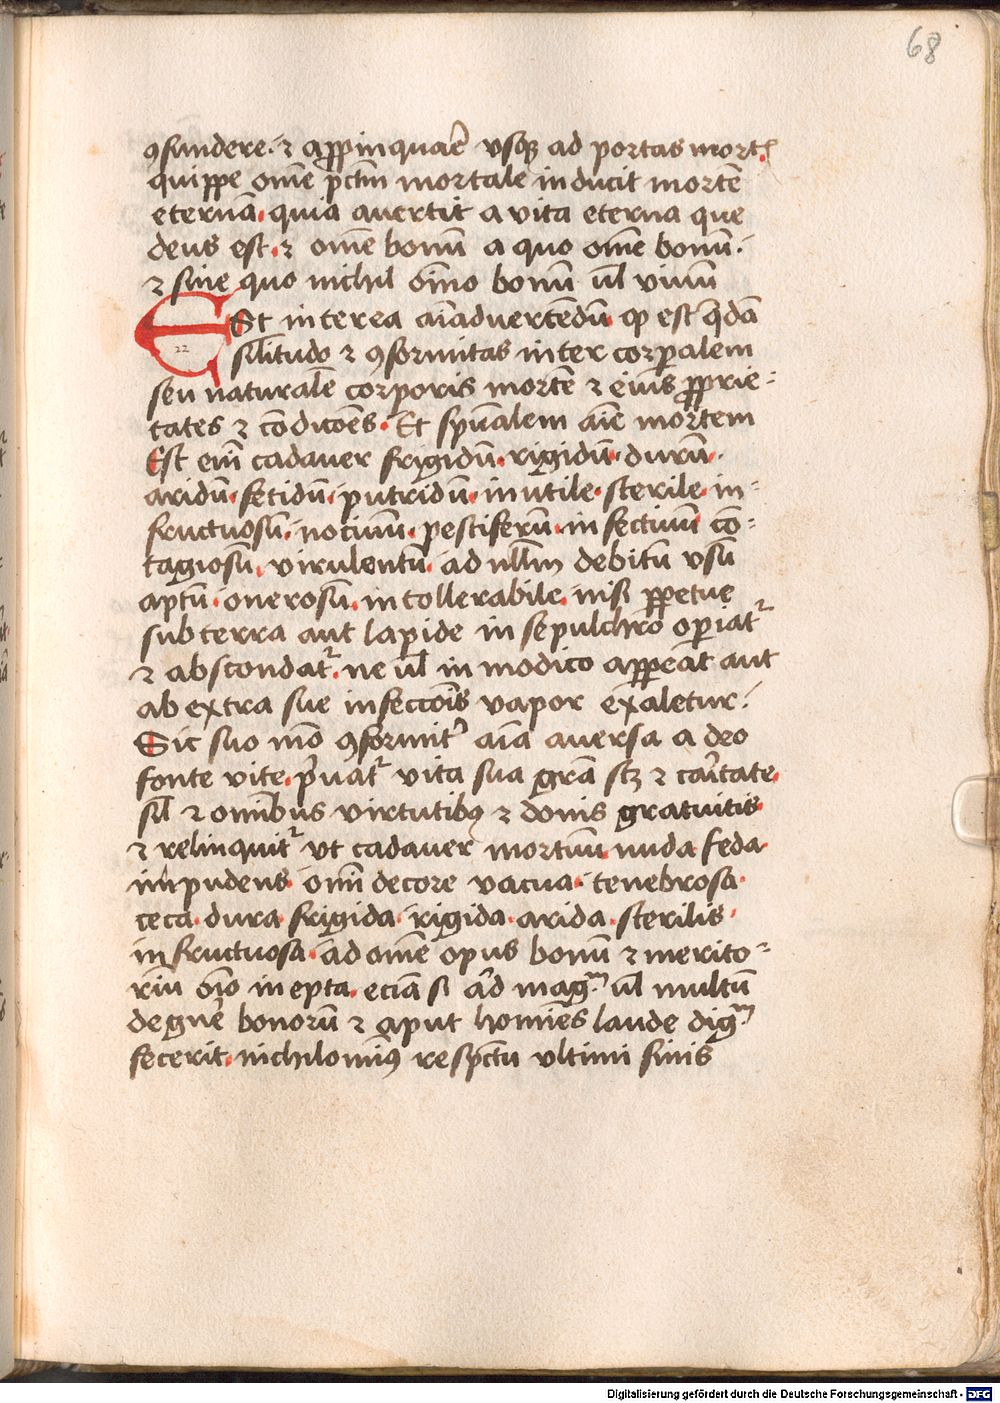 68
ꝯfundere · ⁊ aꝓpinquar̄e vsqꝫ ad portas mort̄ꝭ
quippe om̄e pc̄tm̄ mortale inducit mortē
eternā · quia auertit a vita eterna que
deus est · ⁊ om̄e bonū a quo om̄e bonū ·
⁊ sine quo nichil om̄o bonū ul̄ viuū
Est interea aīaduertēdū ꝙ est q̄dā
22
sil̄itudo ⁊ ꝯformitas inter corꝑalem
seu naturalē corporis mortē ⁊ eius ꝓprie-
tates ⁊ cōdicōes · Et spūalem aīe mortem
Est eīn cadauer frigidū · rigidū · durū ·
aridū · fetidū · putridū · inutile · sterile · in-
fructuosū · nociuū · pestiferū · infectiuū cō-
tagiosū · virulentū · ad ull̄m debitū vsū
aptū · onerosū · intollerabile · nisi ꝑpetue
sub terra aut lapide in sepulchro oꝑiat᷑
⁊ abscondat᷑ · ne ul̄ in modico appēat aut
ab extra sue infeccōis vapor exaletur ·
Sic suo mō ꝯformit᷑ aīa auersa a deo
fonte vite · p̄uat᷑ vita sua gr̄a sꝫ ⁊ car̄itate ·
sil̄ ⁊ om̄ibus virtutibꝯ ⁊ donis gratuitis ·
⁊ relinquit᷑ vt cadauer mortuū nuda feda ·
impudens · om̄i decore vacua · tenebrosa ·
ceca · dura frigida · rigida · arida · sterilis ·
infructuosa · ad om̄e opus bonū ⁊ merito-
riū om̄o inepta · eciā si ad mag.ᵐ ul̄ multū
de gn̄e bonorū ⁊ aput hom̄es laude dig.ᵐ
fecerit · nichilomīꝯ respc̄tu vltimi finis
Digitalisierung gefördert durch die Deutsche Forschungsgemeinschaft - DFG